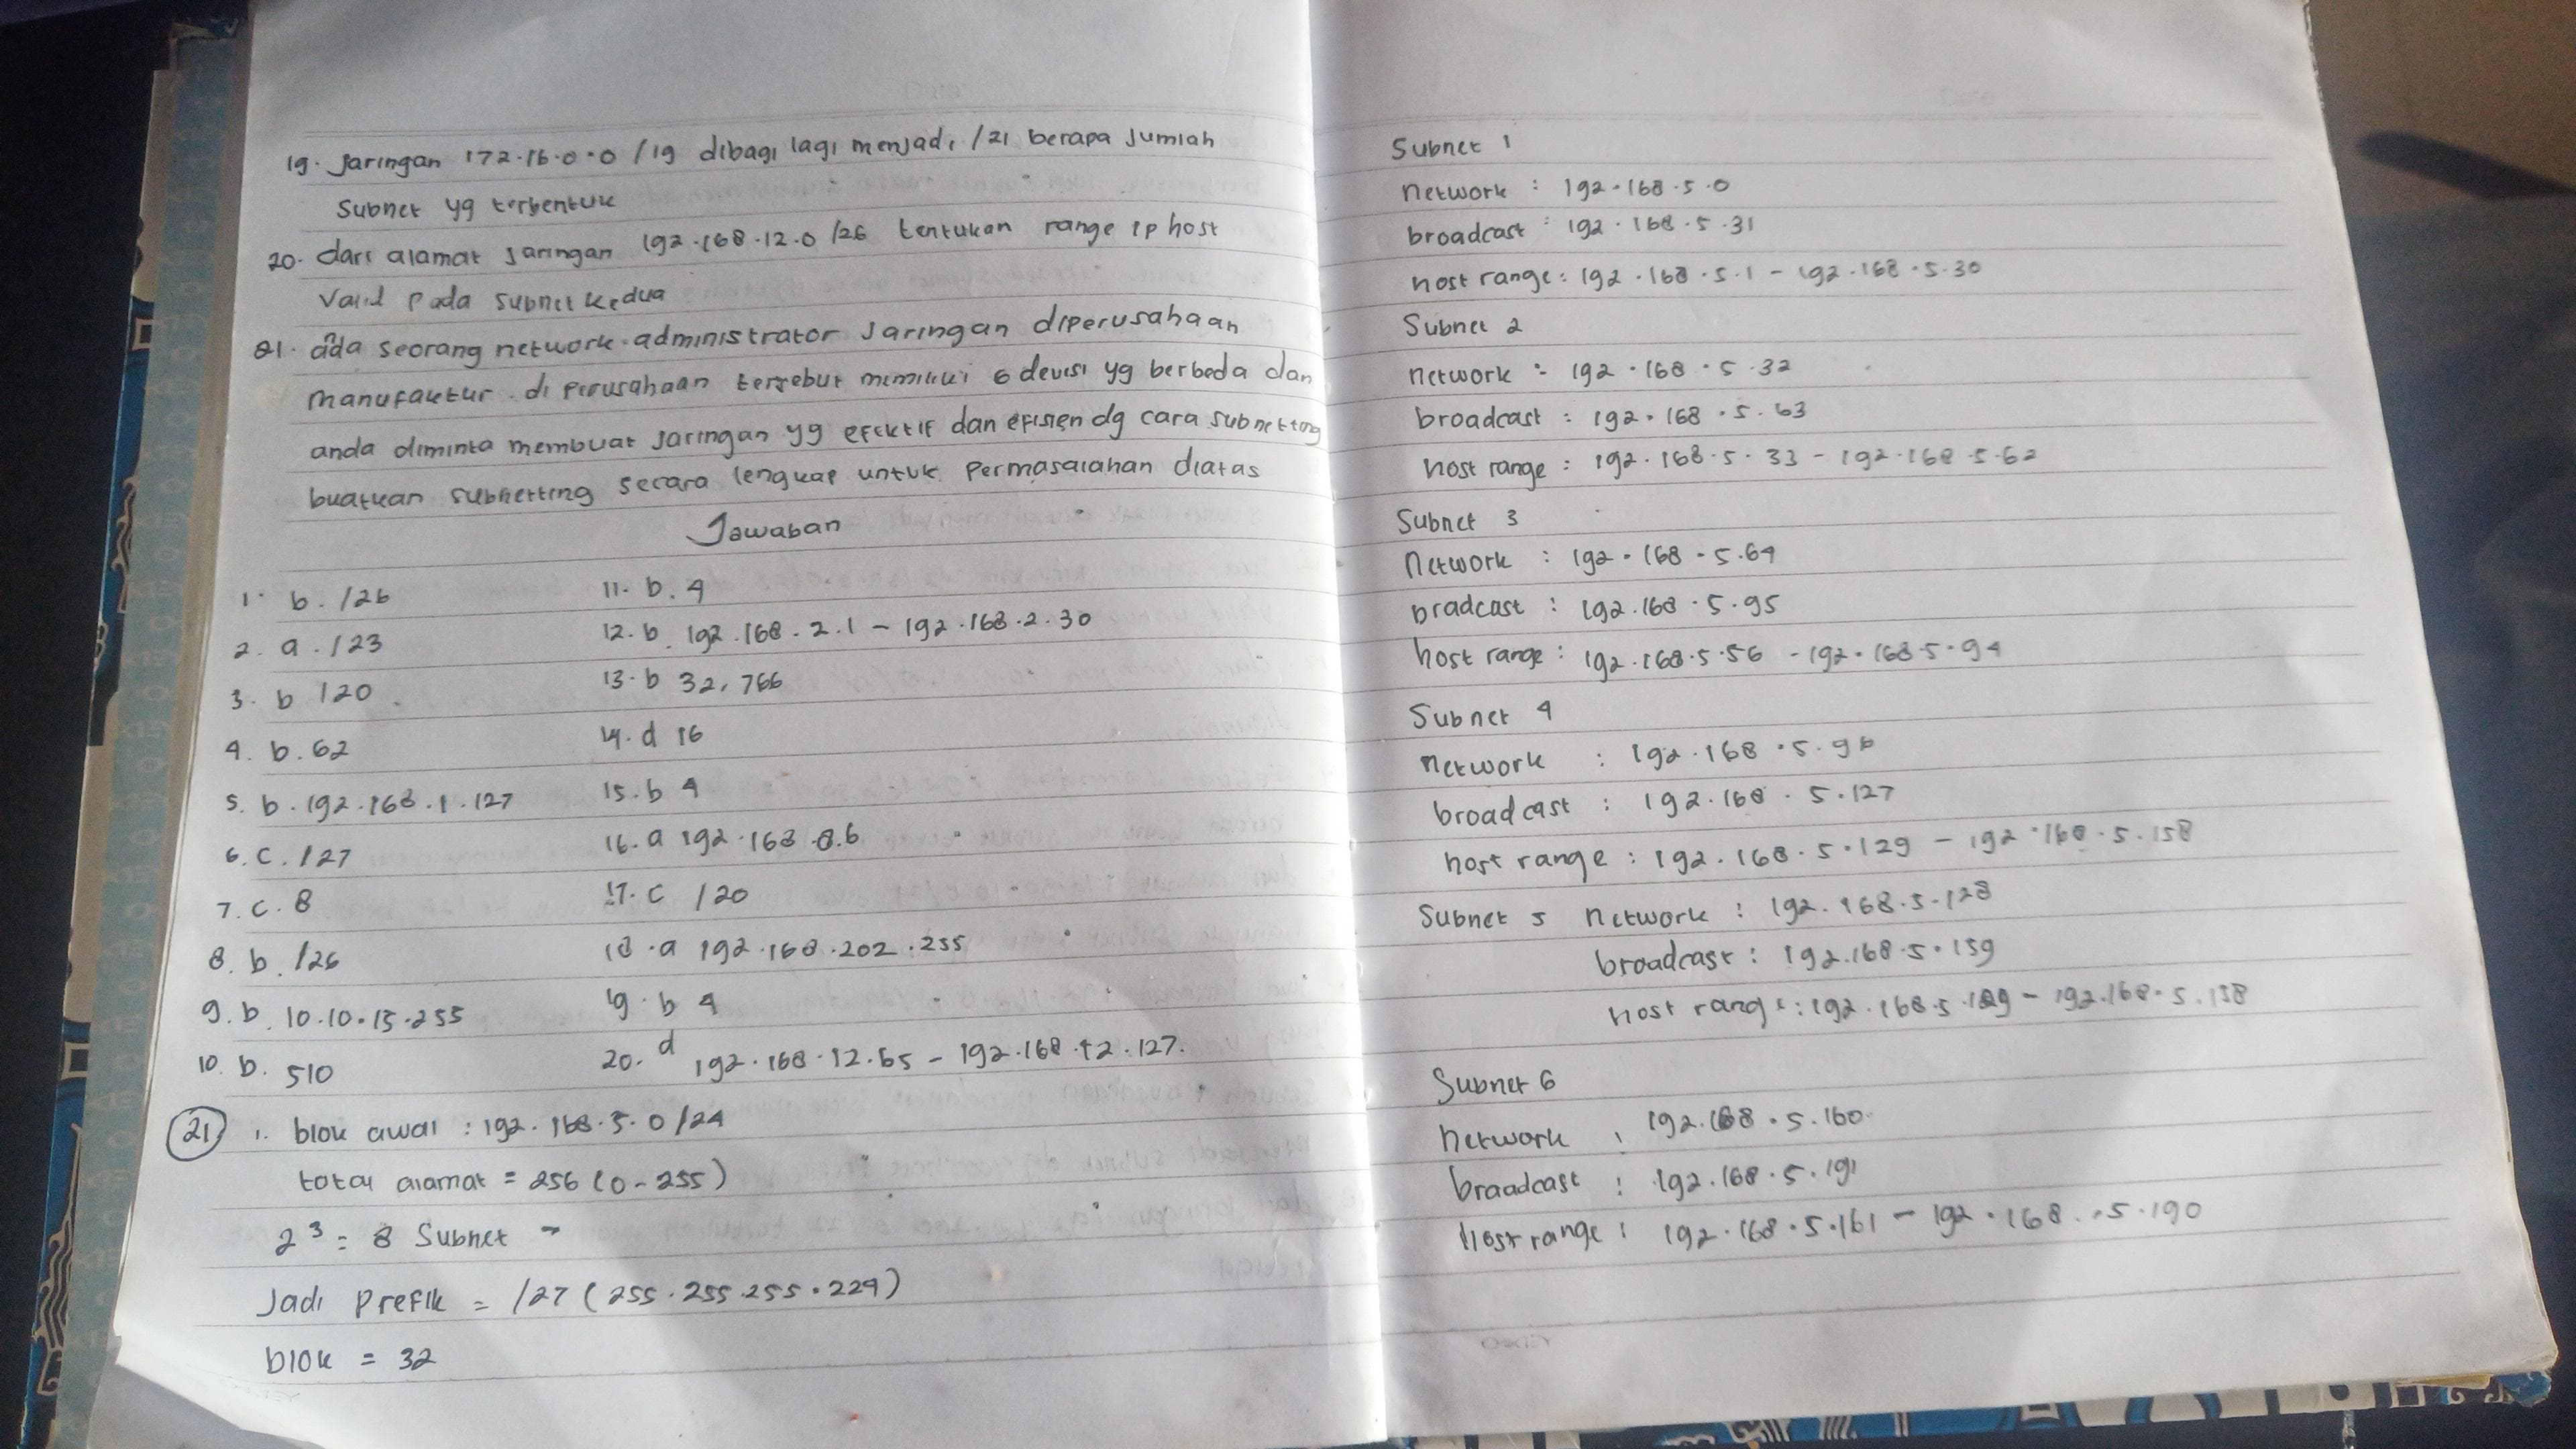 19. Jaringan 172.16.0.0 /19 dibagi lagi menjadi /21 berapa Jumlah
Subnet yg terbentuk
20. dari alamat Jaringan 192.168.12.0 /26 tentukan range ip host
Valid pada subnet kedua
21. ada seorang network administrator Jaringan diperusahaan
manufaktur. di perusahaan tersebut memiliki 6 devisi yg berbeda dan
anda diminta membuat jaringan yg efektif dan efisien dg cara subnetting
buatkan subnetting secara lengkap untuk permasalahan diatas
Jawaban
1. b. /26
2. a. /23
3. b /20
4. b. 62
5. b. 192.168.1.127
6. c. /27
7. c. 8
8. b. /26
9. b. 10.10.15.255
10. b. 510
11. b. 4
12. b. 192.168.2.1 - 192.168.2.30
13. b 32,766
14. d 16
15. b 4
16. a 192.168.8.6
17. c /20
18. a 192.168.202.255
19. b 4
20. d 192.168.12.65 - 192.168.12.127.
21 1. blok awal : 192.168.5.0/24
total alamat = 256 (0-255)
2³ = 8 Subnet -
Jadi prefik = /27 (255.255.255.224)
blok = 32
Subnet 1
network : 192.168.5.0
broadcast : 192.168.5.31
host range : 192.168.5.1 - 192.168.5.30
Subnet 2
network : 192.168.5.32
broadcast : 192.168.5.63
host range : 192.168.5.33 - 192.168.5.62
Subnet 3
Network : 192.168.5.64
bradcast : 192.168.5.95
host range : 192.168.5.56 - 192.168.5.94
Subnet 4
network : 192.168.5.96
broadcast : 192.168.5.127
host range : 192.168.5.129 - 192.168.5.158
Subnet 5 network : 192.168.5.128
broadcast : 192.168.5.159
host range : 192.168.5.129 - 192.168.5.158
Subnet 6
network : 192.168.5.160
broadcast : 192.168.5.191
Host range : 192.168.5.161 - 192.168.5.190